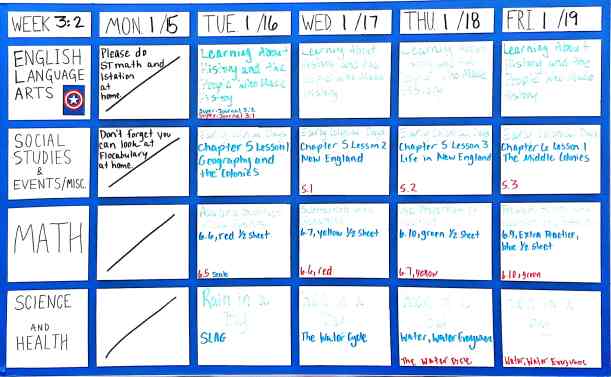 WEEK 3:2
MON. 1/15
TUE. 1/16
WED. 1/17
THU. 1/18
FRI. 1/19
ENGLISH
LANGUAGE
ARTS
Please do
ST math and
Istation
at
home.
Learning About
History and the
People who Make
History
Super-Journal 3:2
Super-Journal 3:1
Learning About
History and the
People who Make
History
Learning About
History and the
People who Make
History
Learning About
History and the
People who Make
History
SOCIAL
STUDIES
&
EVENTS/MISC.
Don't forget you
can look at
Flocabulary
at home.
Early Colonial Days
Chapter 5 Lesson 1
Geography and
the Colonies
Early Colonial Days
Chapter 5 Lesson 2
New England
5.1
Early Colonial Days
Chapter 5 Lesson 3
Life in New England
5.2
Early Colonial Days
Chapter 6 Lesson 1
The Middle Colonies
5.3
MATH
6.6, red ½ sheet
6.5
6.7, yellow ½ sheet
6.6, red
6.10, green ½ sheet
6.7, yellow
6.9, Extra Practice,
blue ½ sheet
6.10, green
SCIENCE
AND
HEALTH
Rain in a
SLAG
The Water Cycle
Water, Water Everywhere
The Water Cycle
Water, Water Everywhere